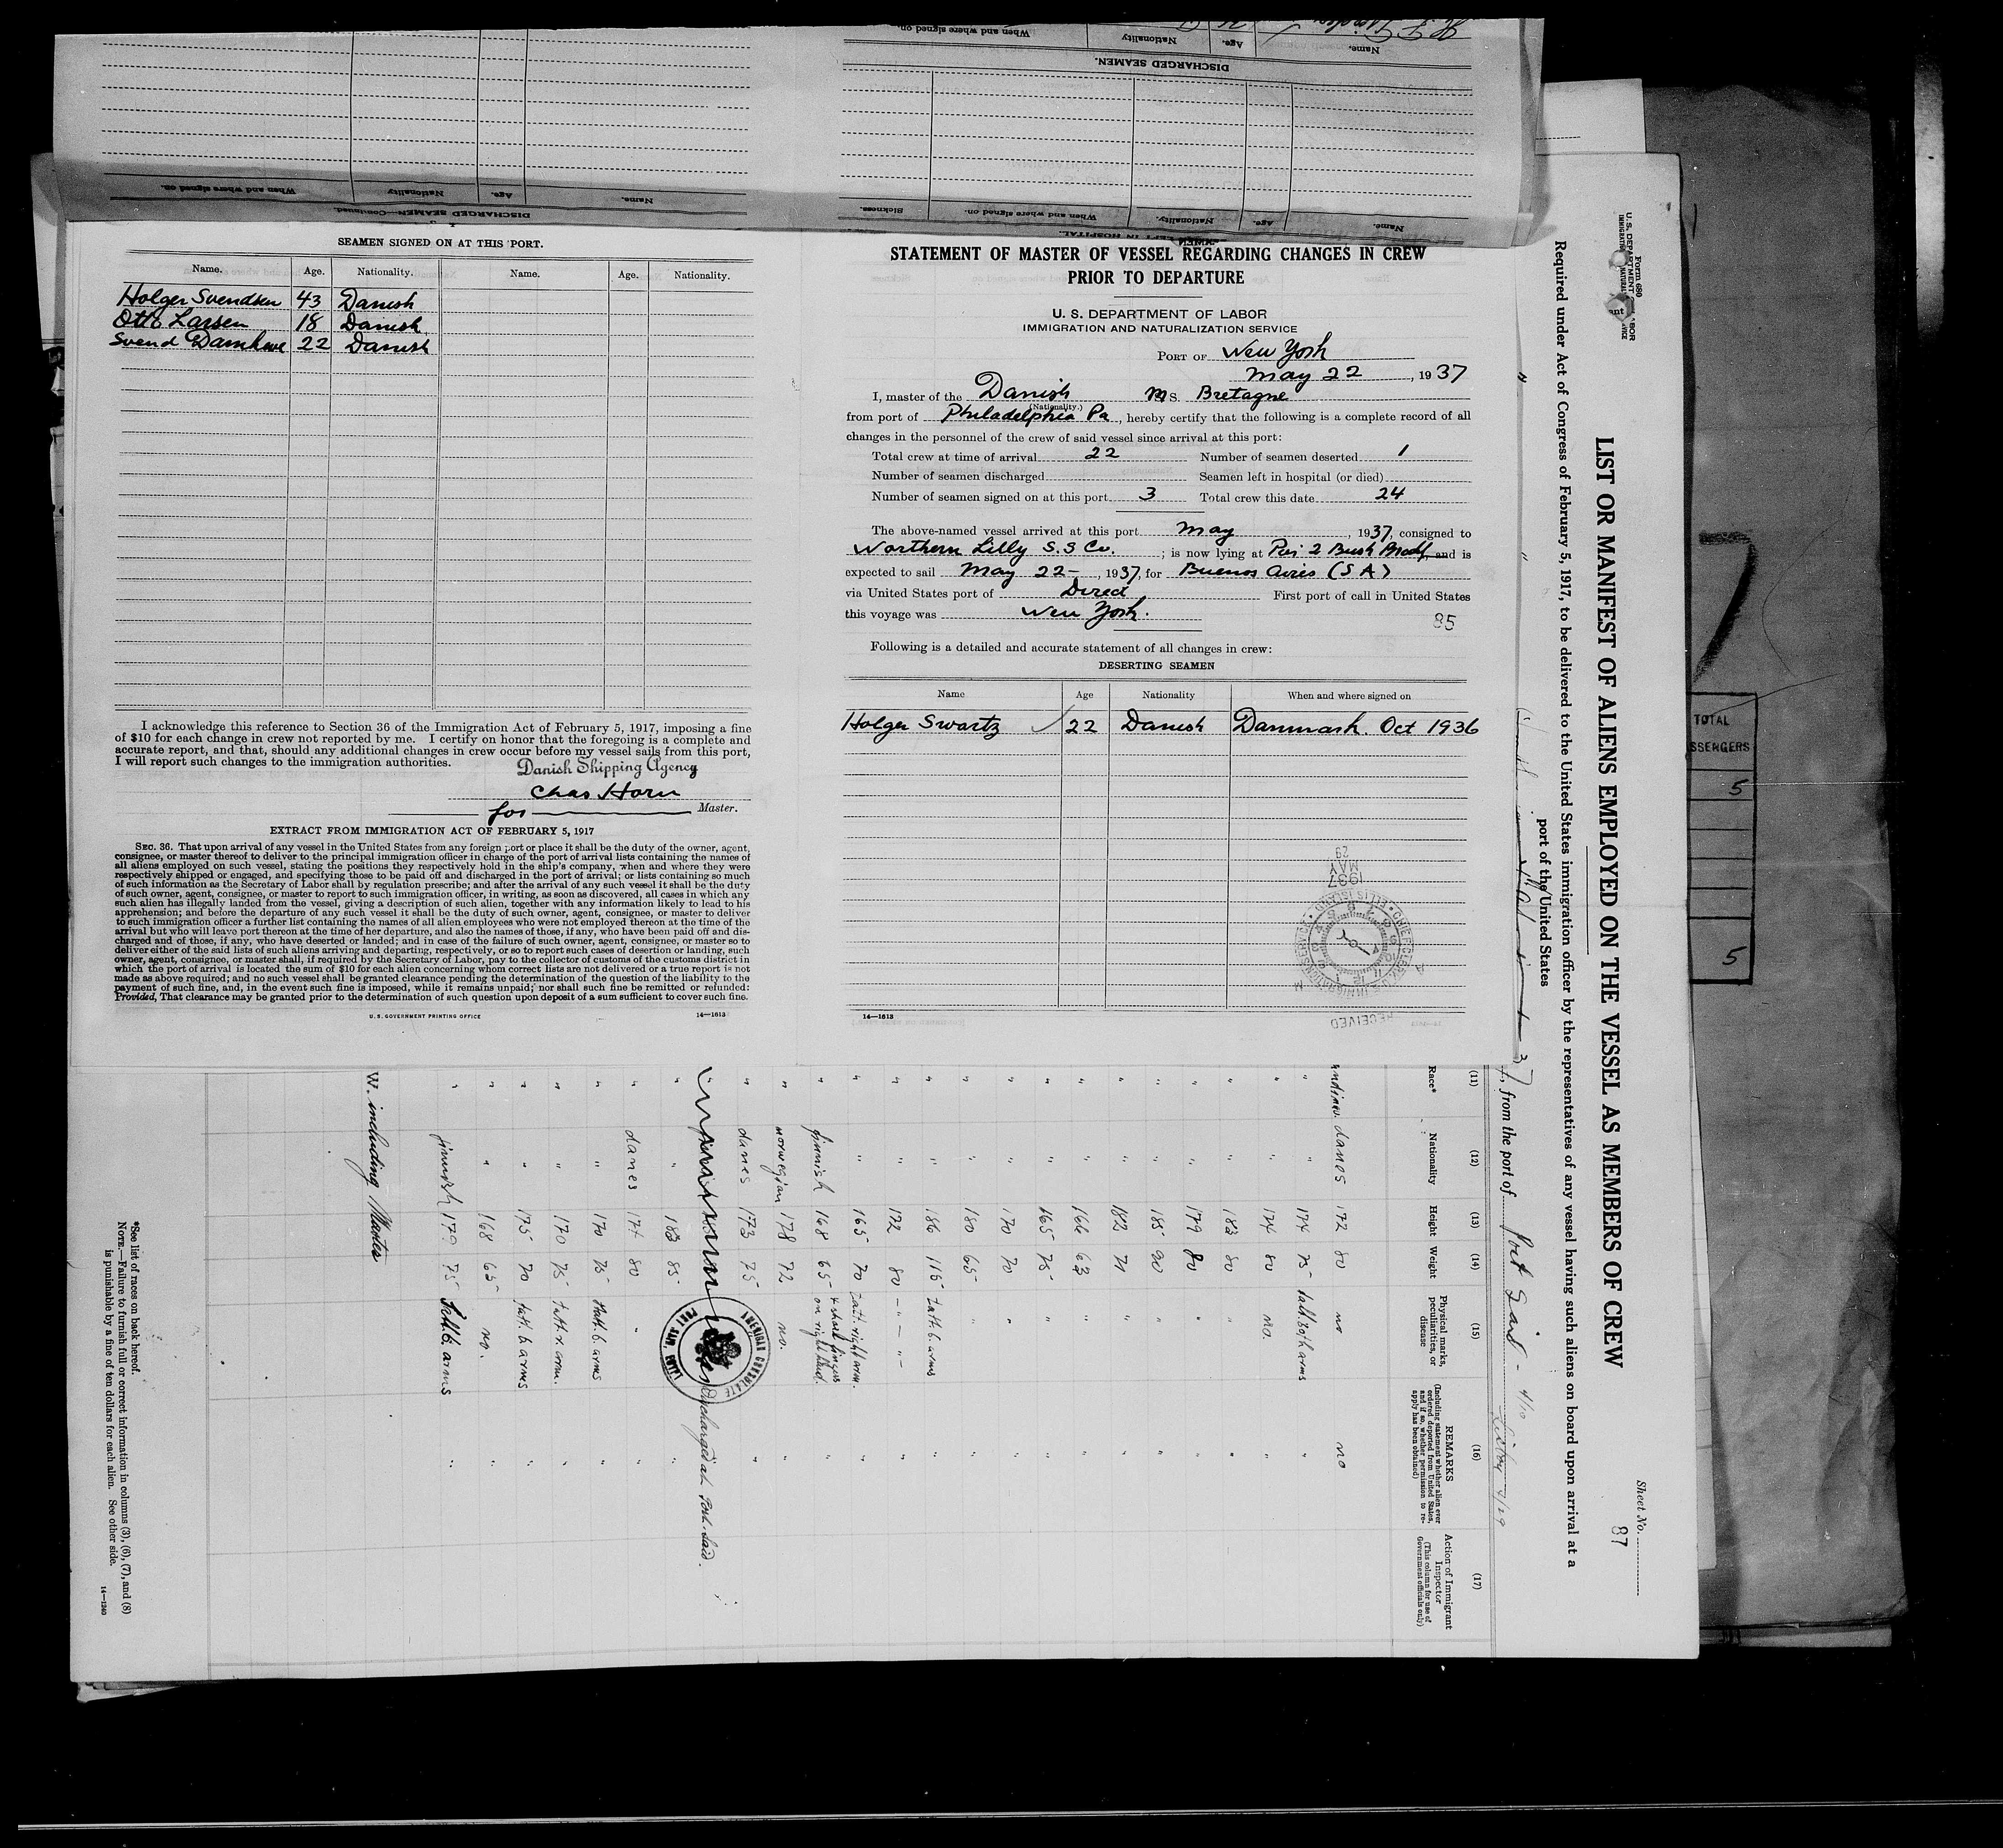 SEAMEN SIGNED ON AT THIS PORT.
Name. Age. Nationality. Name. Age. Nationality.
Holger Svendsen 43 Danish
Otto Larsen 18 Danish
Svend 22 Danish
I acknowledge this reference to Section 36 of the Immigration Act of February 5, 1917, imposing a fine
of $10 for each change in crew not reported by me. I certify on honor that the foregoing is a complete and
accurate report, and that, should any additional changes in crew occur before my vessel sails from this port,
I will report such changes to the immigration authorities.
Danish Shipping Agency
Chas Horn
for Master.
EXTRACT FROM IMMIGRATION ACT OF FEBRUARY 5, 1917
SEC. 36. That upon arrival of any vessel in the United States from any foreign port or place it shall be the duty of the owner, agent,
consignee, or master thereof to deliver to the principal immigration officer in charge of the port of arrival lists containing the names of
all aliens employed on such vessel, stating the positions they respectively hold in the ship's company, when and where they were
respectively shipped or engaged, and specifying those to be paid off and discharged in the port of arrival; or lists containing so much
of such information as the Secretary of Labor shall by regulation prescribe; and after the arrival of any such vessel it shall be the duty
of such owner, agent, consignee, or master to report to such immigration officer, in writing, as soon as discovered, all cases in which any
such alien has illegally landed from the vessel, giving a description of such alien, together with any information likely to lead to his
apprehension; and before the departure of any such vessel it shall be the duty of such owner, agent, consignee, or master to deliver
to such immigration officer a further list containing the names of all alien employees who were not employed thereon at the time of the
arrival but who will leave port thereon at the time of her departure, and also the names of those, if any, who have been paid off and dis-
charged and of those, if any, who have deserted or landed; and in case of the failure of such owner, agent, consignee, or master so to
deliver either of the said lists of such aliens arriving and departing, respectively, or so to report such cases of desertion or landing, such
owner, agent, consignee, or master shall, if required by the Secretary of Labor, pay to the collector of customs of the customs district in
which the port of arrival is located the sum of $10 for each alien concerning whom correct lists are not delivered or a true report is not
made as above required; and no such vessel shall be granted clearance pending the determination of the question of the liability to the
payment of such fine, and, in the event such fine is imposed, while it remains unpaid; nor shall such fine be remitted or refunded:
Provided, That clearance may be granted prior to the determination of such question upon deposit of a sum sufficient to cover such fine.
U.S. GOVERNMENT PRINTING OFFICE 14—1613
DISCHARGED SEAMEN.
Name. Age. Nationality When and where signed on
Name. Age. Nationality. When and where signed on. Sickness.
DISCHARGED SEAMEN—Continued.
Name. Age. Nationality When and where signed on.
STATEMENT OF MASTER OF VESSEL REGARDING CHANGES IN CREW
PRIOR TO DEPARTURE
U. S. DEPARTMENT OF LABOR
IMMIGRATION AND NATURALIZATION SERVICE
PORT OF New York
May 22, 1937
I, master of the Danish MS. Bretagne
(Nationality.)
from port of Philadelphia Pa, hereby certify that the following is a complete record of all
changes in the personnel of the crew of said vessel since arrival at this port:
Total crew at time of arrival 22 Number of seamen deserted 1
Number of seamen discharged Seamen left in hospital (or died)
Number of seamen signed on at this port 3 Total crew this date 24
The above-named vessel arrived at this port May, 1937, consigned to
Northern Lilly S.S Co.; is now lying at Pier 2 Bush and is
expected to sail May 22-, 1937, for Buenos Aires (SA)
via United States port of Direct First port of call in United States
this voyage was New York.
85
Following is a detailed and accurate statement of all changes in crew:
DESERTING SEAMEN
Name Age Nationality When and where signed on
Holger Swartz 22 Danish Danmark. Oct 1936
1937
MAY
29
RECEIVED
14—1613
Form 680
U. S. DEPARTMENT OF LABOR
Sheet No.
87
LIST OR MANIFEST OF ALIENS EMPLOYED ON THE VESSEL AS MEMBERS OF CREW
Required under Act of Congress of February 5, 1917, to be delivered to the United States immigration officer by the representatives of any vessel having such aliens on board upon arrival at a
port of the United States
, from the port of Port Said - 4/10
Lisbon 4/29
(11) (12) (13) (14) (15) (16) (17)
Race* Nationality Height Weight
Physical marks, peculiarities, or disease
REMARKS
(Including statement whether alien ever ordered deported from United States, and if so, whether permission to re-apply has been obtained)
Action of Immigrant Inspector
(This column for use of Government officials only)
danes 172 80 no no
" " 174 75 " 
" " 174 80 no. "
" " 183 80 " "
" " 179 80 " "
" " 185 90 " "
" " 182 71 " "
" " 166 63 " "
" " 165 75 " "
" " 170 70 " "
" " 180 65 " "
" " 186 115 tatt. b. arms "
" " 172 80 "
" " 165 70 tatt. right arm. "
" finnish 168 65 on right hand. "
" norwegian 178 72 no.
" danes 173 75 "
Discharged at Port-Said.
" " 183 85 "
" danes 174 80 " "
" " 170 75 tatt. b arms "
" " 170 75 tatt. arm. "
" " 175 70 tatt. b arms "
" " 168 65 no. "
" finnish 179 75 b. arms "
AMERICAN CONSULATE
PORT SAID, EGYPT
W. including Master
*See list of races on back hereof.
NOTE.—Failure to furnish full or correct information in columns (3), (6), (7), and (8)
is punishable by a fine of ten dollars for each alien. See other side.
14—1240
TOTAL
5
5